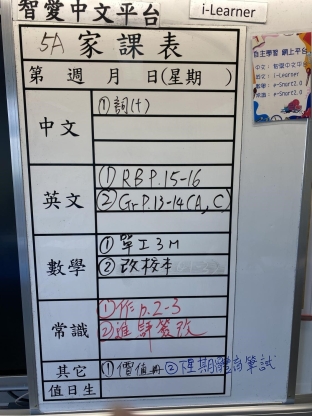 智愛中文平台
i-Learner
5A 家課表
第 週 月 日(星期 )
中文
①詞(十)
英文
①RB P.15-16
②Gr P.13-14(A, C)
數學
①單工3M
②改校本
常識
①作 p.2-3
②進評簽改
其它
①價值冊 ②下星期體商筆試
值日生
自主學習 網上平台
中文: 智愛中文平台
英文: i-Learner
e-Smart2.0
e-Smart2.0